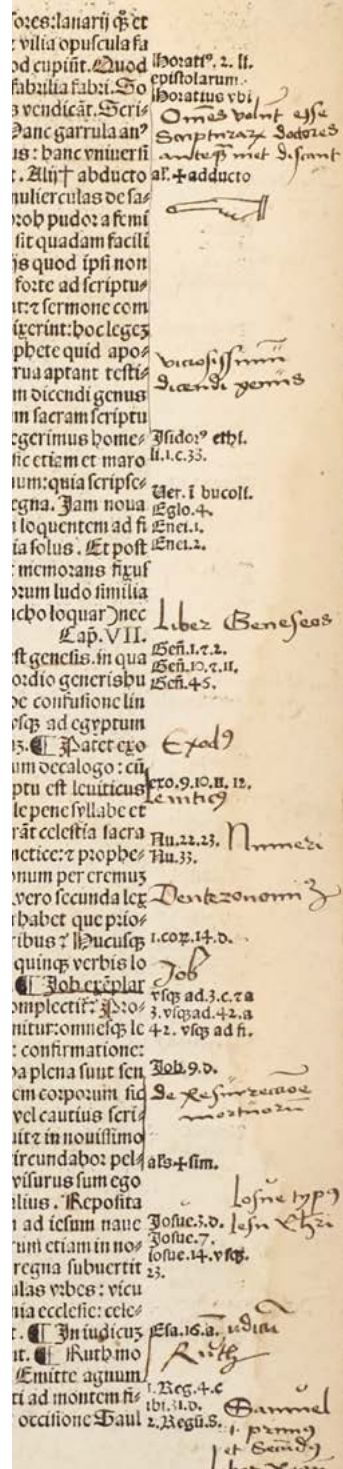 ores:lanarij qꝫ et
vilia opuscula fa
od cupiūt. Quod
fabrilia fabri. So
s vendicāt. Scri-
Hanc garrula anꝰ
us: hanc vniuersi
t. Alij† abducto
mulierculas de sa-
roh pudor a femi
sit quadam facili
ijs quod ipsi non
forte ad scriptu-
ut:⁊ sermone com
ixerint:hoc legeꝫ
phete quid apo-
rua aptant testi-
m dicendi genus
m sacram scriptu
egerimus home-
sic etiam et maro
ium:quia scripse-
egna. Jam noua
loquentem ad fi
ia solus. Et post
memorans fixus
orum ludo similia
cho loquar)nec
Cap̄. VII.
st genesis. in qua
ordio generishu
de confusione lin
vsqꝫ ad egyptum
ꝫ. ¶ Patet exo
um decalogo: cū
ptu est leuiticus
le pene syllabe et
rāt celestia sacra
metice:⁊ prophe-
onum per eremuꝫ
vero secunda lex
habet que prio-
ribus? Hucusqꝫ
quinqꝫ verbis lo
¶ Job exēplar
omplectit̄? Pro-
nitur:omnesqꝫ le
: confirmatione:
ba plena sunt sen
em corporum sic
vel cautius scri-
uit⁊ in nouissimo
circundabor pel-
visurus sum ego
alius. Reposita
ad iesum naue
rum etiam in no-
regna subuertit
ulas vrbes: vicu
nia ecclesie: cele-
t. ¶ In iudicuꝫ
nt. ¶ Ruth mo
Emitte agnum
ti ad montem fi-
occisione Saul
Horatiꝰ. 2. li.
epistolarum.
Horatius vbi
Omēs volūt esse
Scripturarꝫ doctores
anteqꝫ met discant
al's.+adducto
viciosissimū
dicendi genus
Isidorꝰ ethl.
li.1.c.33.
Uer. ī bucoli.
Eglo.4.
Enei.1.
Enei.2.
Liber Geneseos
Geñ.1.⁊.2.
Geñ.10.⁊.11.
Geñ.45.
Exodꝰ
exo.9.10.11.12.
Leuiticꝰ
Nu.22.23.
Numeri
Nu.33.
Deuteronomiꝰ
1.coꝛ.14.d.
Job
vsqꝫ ad.3.c.⁊a
3.vsqꝫad.42.a
42. vsqꝫ ad fi.
Job.9.d.
de Resurrectiōe
mortuorū
al's+sim.
Josue typꝰ
Josue.3.d.
Iesu Chri
Josue.7.
iosue.14.vsqꝫ.
23.
Esa.16.a.
iudicū
Ruth
1.Reg.4.c
ibi.31.d.
2.Regū.8.
Samuel
primꝰ
et Secūdꝰ